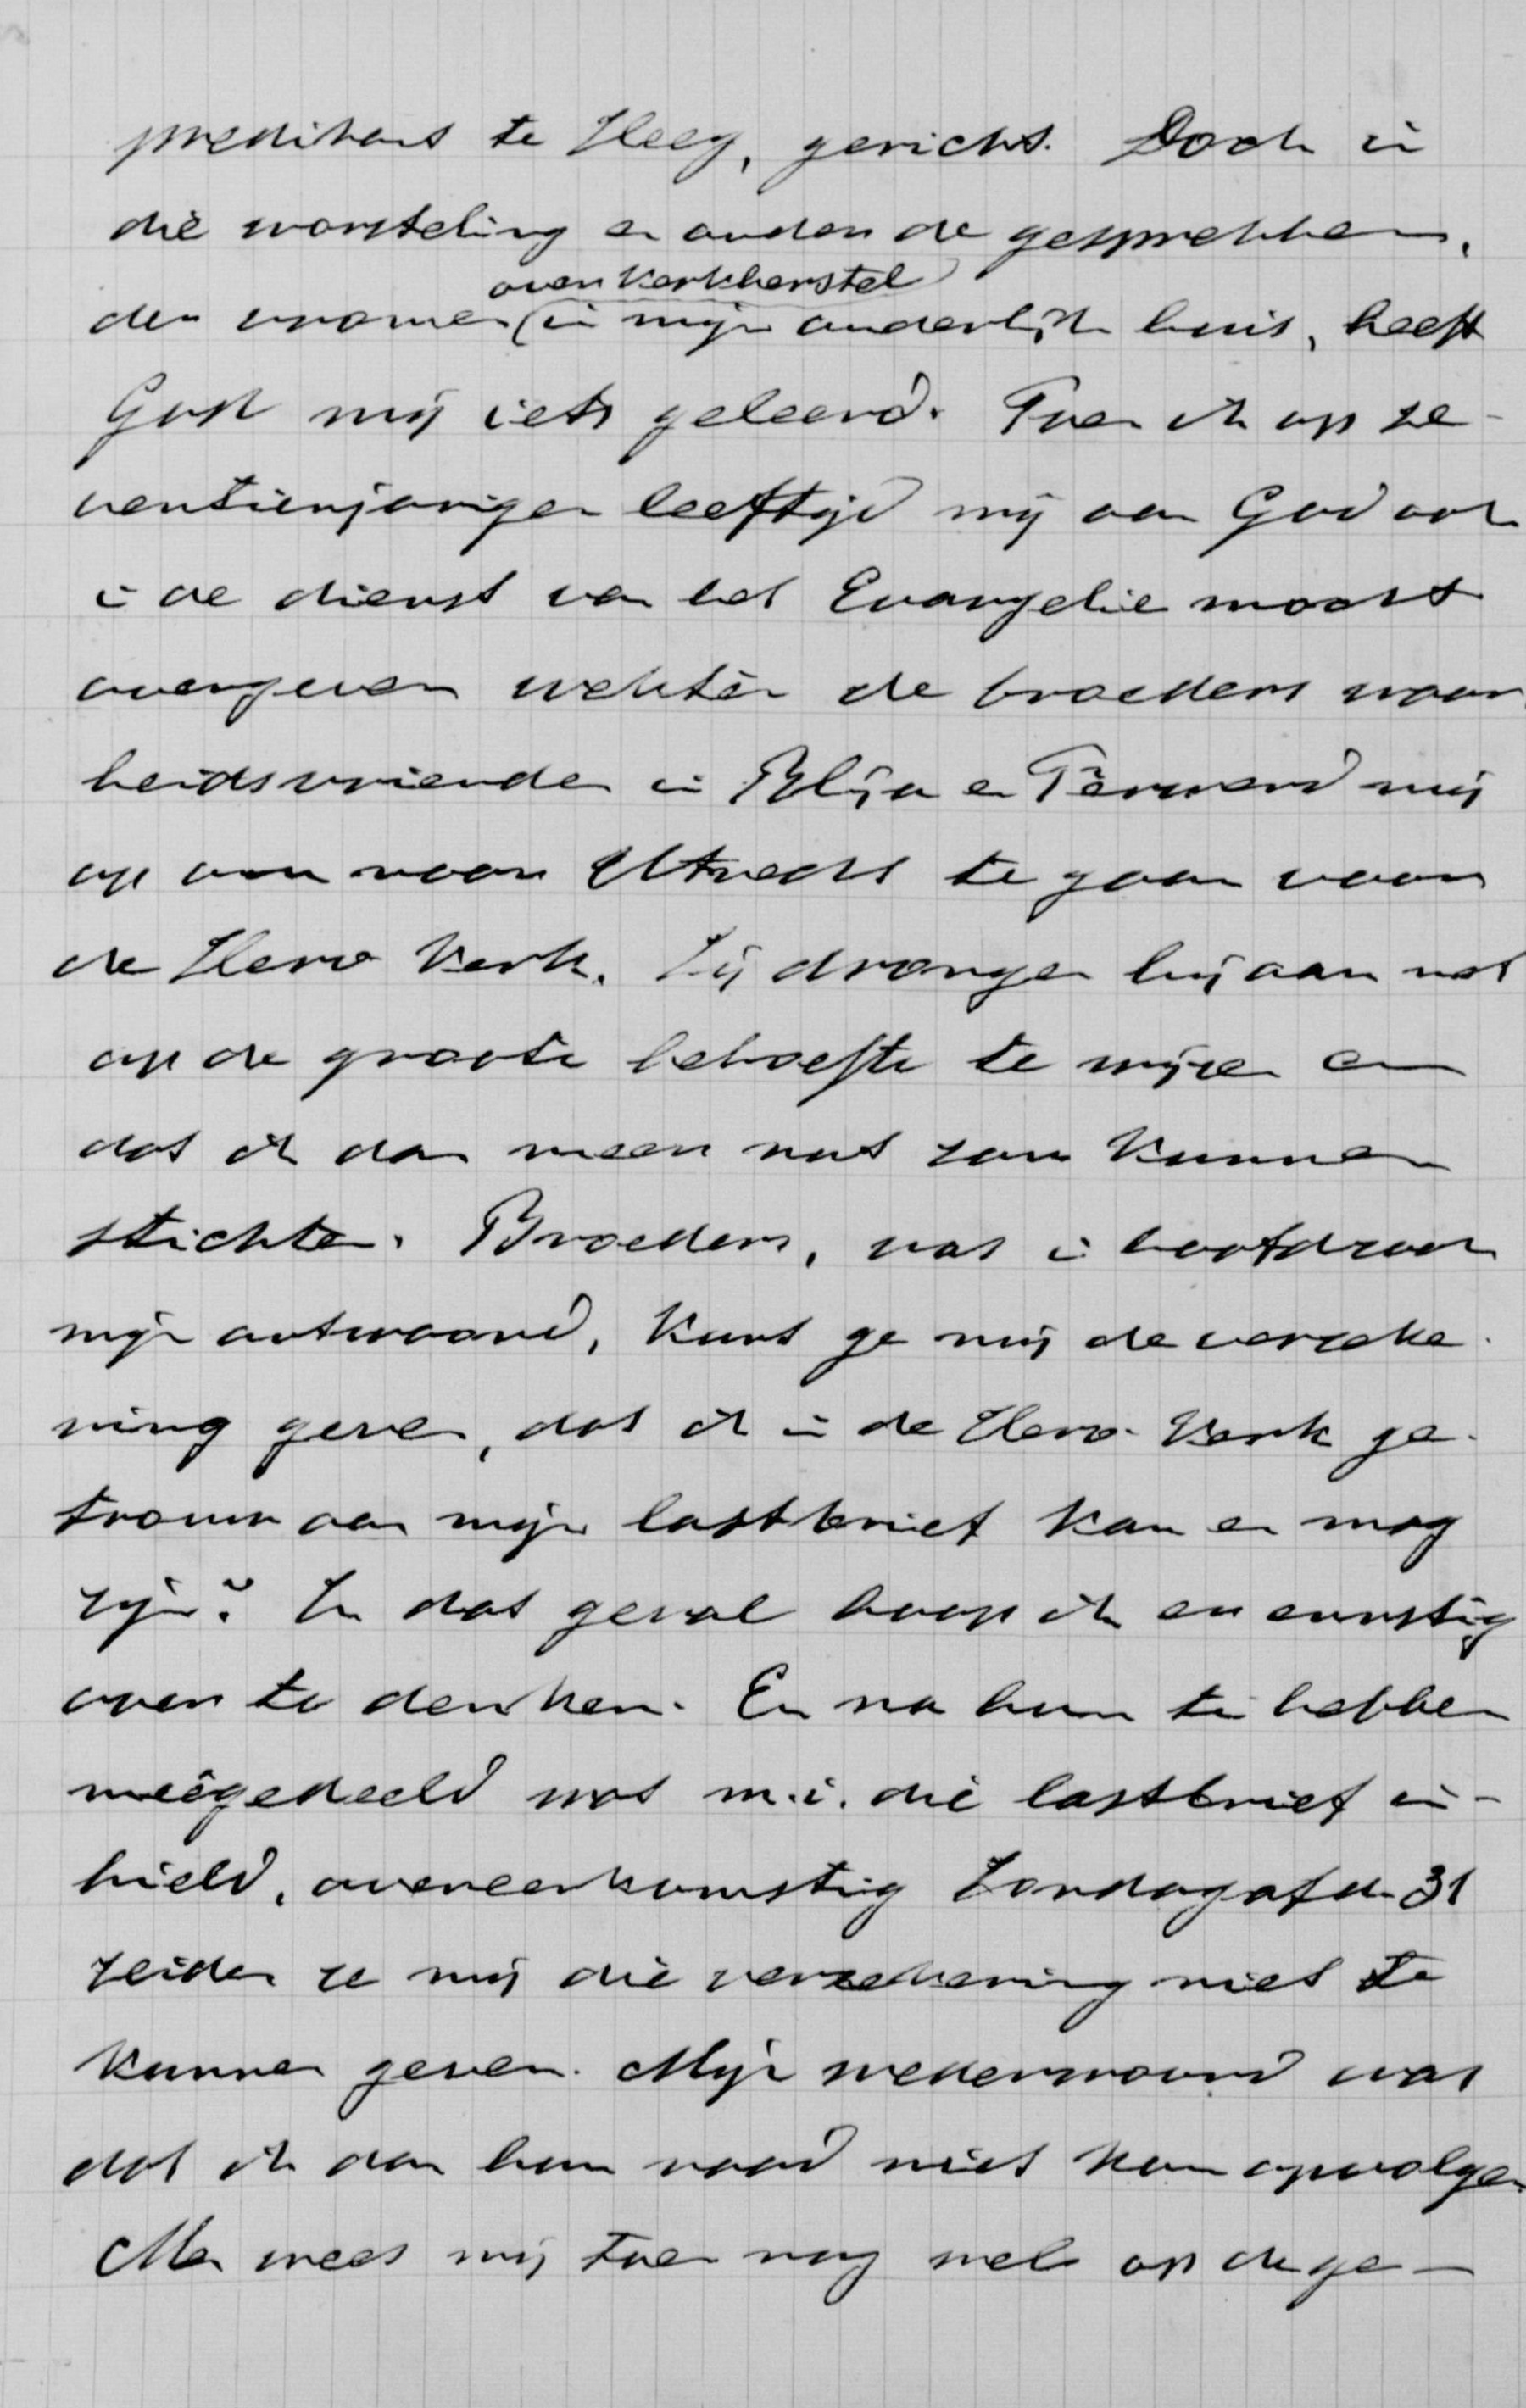 predikant te Heeg, gericht. Doch in
die worsteling en onder de gesprekken,
over Kerkherstel
der vromen (in mijn ouderlijk huis, heeft
God mij iets geleerd. Toen ik op ze-
ventienjarigen leeftijd mij aan God ook
in de dienst van het Evangelie mocht
overgeven wekten de broeders waar-
heidsvrienden in Blija en Ferwerd mij
op om naar Utrecht te gaan voor
de Herv Kerk. Zij drongen bij aan met
op de groote behoefte te wijzen en
dat ik daar meer nut zou kunnen
stichten. Broeders, was in hoofdzaak
mijn antwoord, Kunt ge mij de verzeke-
ring geven, dat ik in de Herv. Kerk ge-
trouw aan mijn lastbrief kan en mag
zijn? In dat geval hoop ik er ernstig
over te denken. En na hun te hebben
meêgedeeld wat m.i. die lastbrief in-
hield, overeenkomstig Zondagafd. 31
zeiden ze mij die verzekering niet te
kunnen geven. Mijn wederwoord was
dat ik dan hun raad niet kon opvolgen
Men wees mij toen nog wel op de ge-